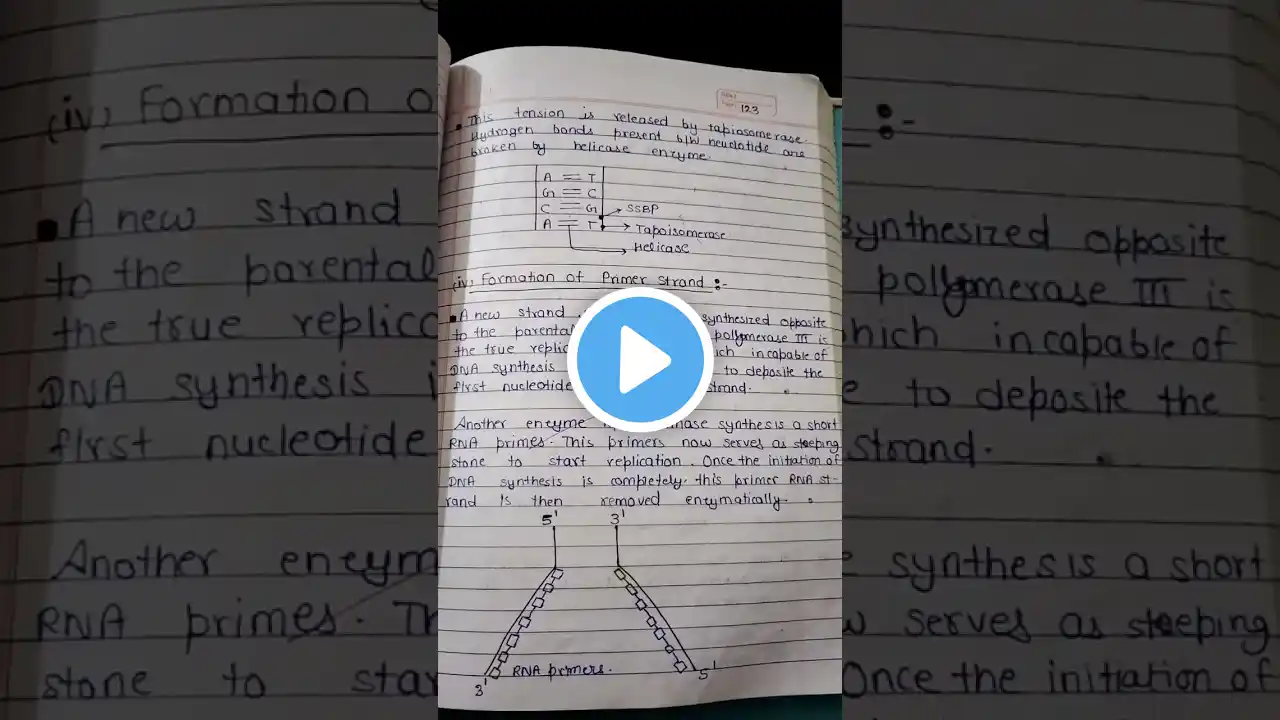 123
• This tension is released by tapiosomerase.
Hydrogen bonds present b/w neuclotide are
broken by helicase enzyme.
A = T
G ≡ C
C ≡ G
A = T
SSBP
Tapoisomerase
Helicase
(iv) Formation of Primer strand :-
• A new strand synthesized opposite
to the parental pollymerase III is
the true replic ich incapable of
DNA synthesis to deposite the
first nucleotide strand.
Another enzyme synthesis a short
RNA primes. This primers now serves as steeping
stone to start replication. Once the initiation of
DNA synthesis is completely. this primer RNA st-
rand is then removed enzymatically.
5' 3'
RNA primers.
3' 5'
(iv) Formation o :-
A new strand synthesized opposite
to the parental pollymerase III is
the true replica hich incapable of
DNA synthesis to deposite the
first nucleotide strand.
Another enzym synthesis a short
RNA primes. Th serves as steeping
stone to star Once the initiation of